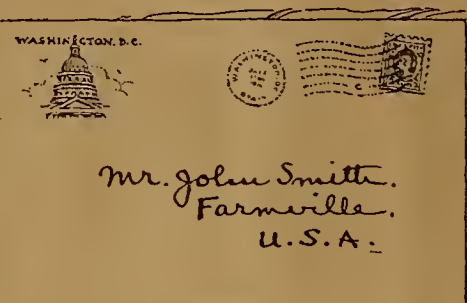 WASHINGTON, D.C.
WASHINGTON
C
Mr. John Smith.
Farmville.
U.S.A.